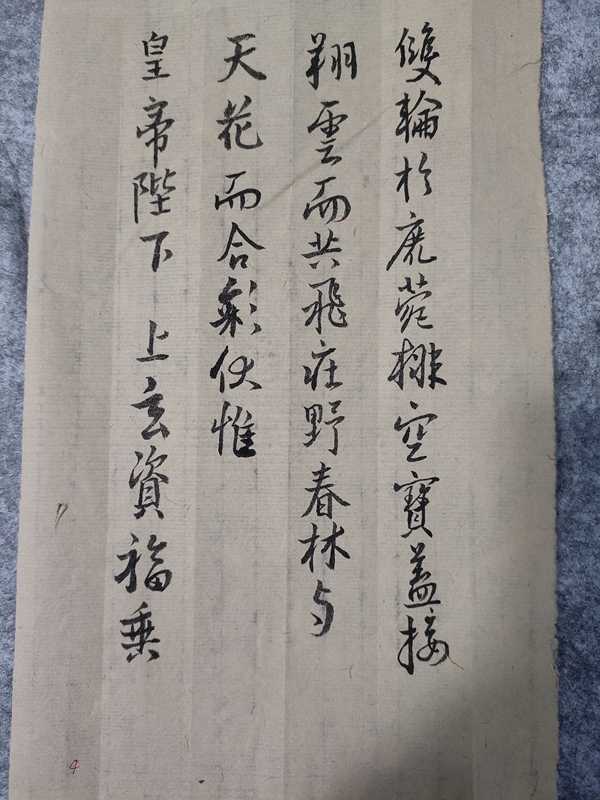 雙輪於鹿菀排空寶蓋接
翔雲而共飛莊野春林与
天花而合彩伏惟
皇帝陛下 上玄資福乗
4